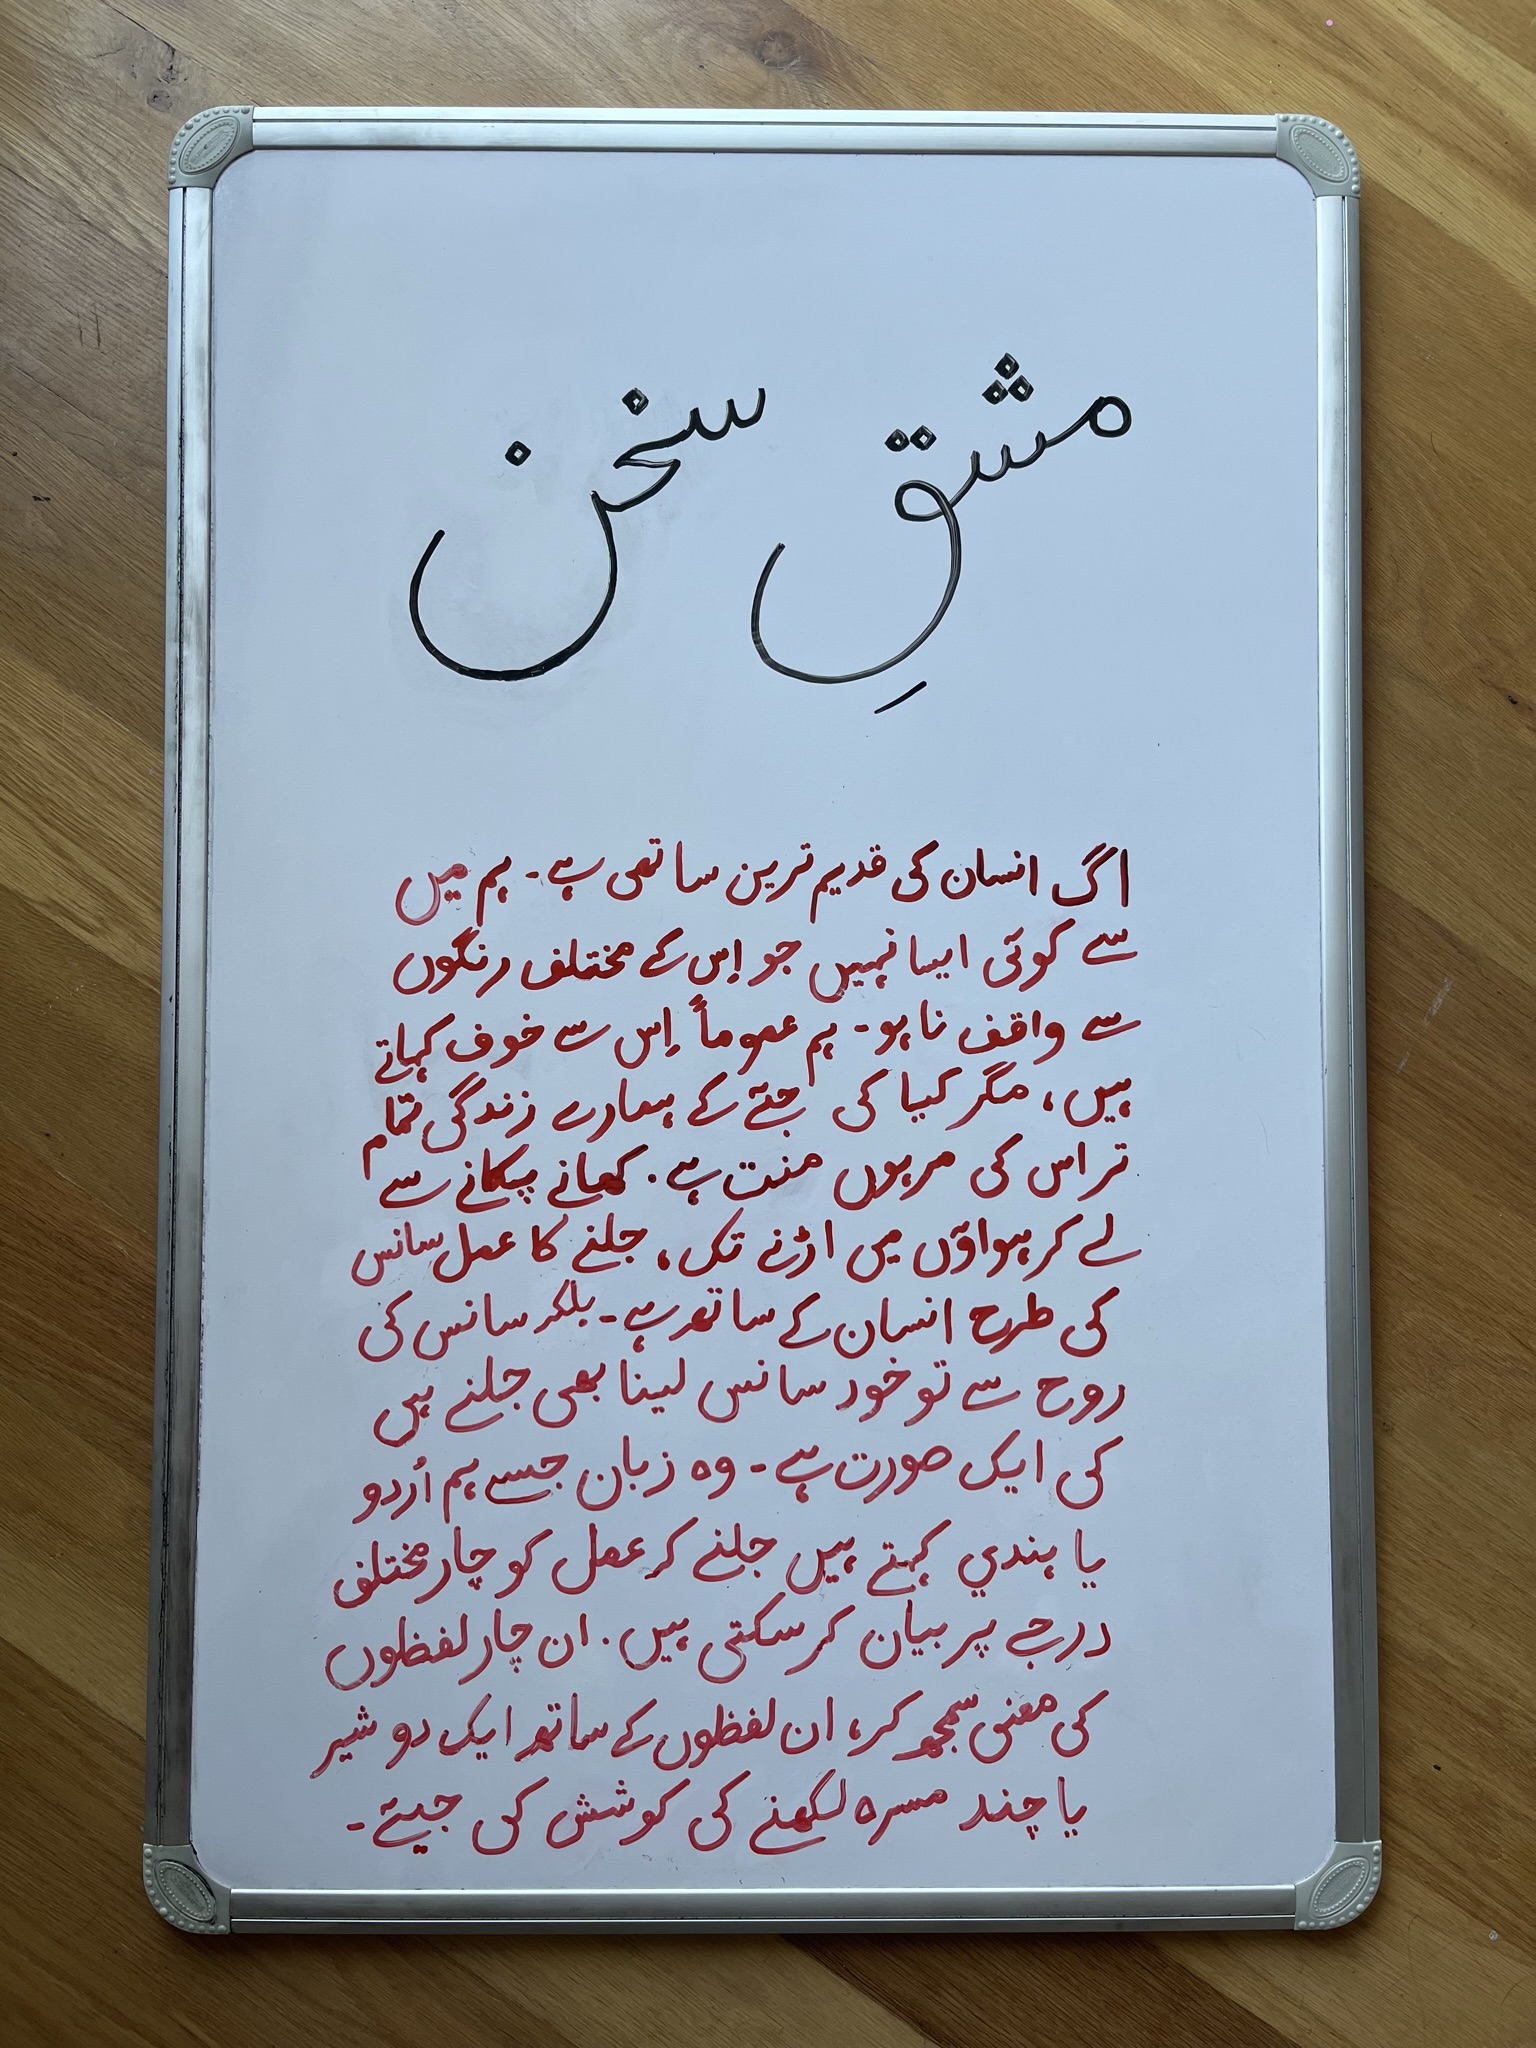 مشقِ سخن
اگ انسان کی قدیم ترین ساتھی ہے۔ ہم میں
سے کوئی ایسا نہیں جو اِس کے مختلف رنگوں
سے واقف نا ہو۔ ہم عموماً اِس سے خوف کہاتے
ہیں، مگر کیا کی جئے کے ہمارے زندگی تمام
تر اس کی مرہوں منت ہے۔ کھانے پکانے سے
لے کر ہواؤں میں اڑنے تک، جلنے کا عمل سانس
کی طرح انسان کے ساتھ ہے۔ بلکہ سانس کی
روح سے تو خود سانس لینا بھی جلنے ہی
کی ایک صورت ہے۔ وہ زبان جسے ہم اُردو
یا ہندی کہتے ہیں جلنے کر عمل کو چار مختلف
درجے پر بیان کر سکتی ہیں۔ ان چار لفظوں
کی معنی سمجھ کر، ان لفظوں کے ساتھ ایک دو شیر
یا چند مسرہ لکھنے کی کوشش کی جیئے۔